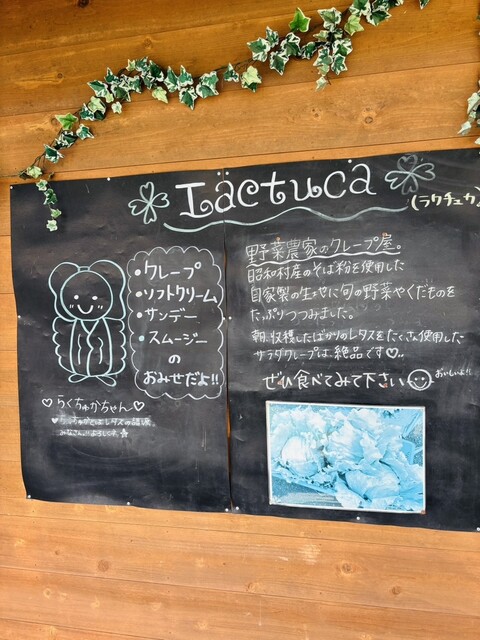 Lactuca
(ラクチュカ)
・クレープ
・ソフトクリーム
・サンデー
・スムージー
の
おみせだよ!!
♡らくちゅかちゃん♡
♥ラクチュカとはレタスの語源。
みなさん!!よろしくネ。
野菜農家のクレープ屋。
昭和村産のそば粉を使用した
自家製の生地に旬の野菜やくだものを
たっぷりつつみました。
朝、収穫したばかりのレタスをたくさん使用した
サラダクレープは、絶品です♡。
ぜひ食べてみて下さい
おいしいよ!!